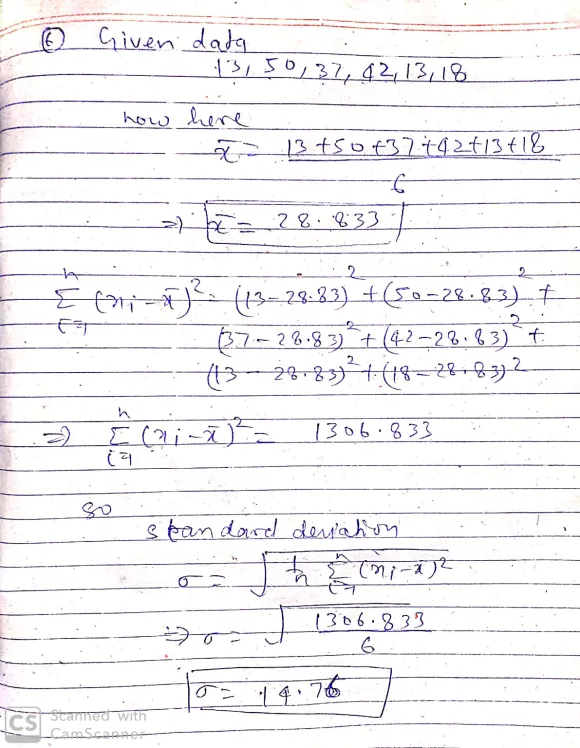 ⑥ Given data
13, 50, 37, 42, 13, 18
now here
x̄ = 13+50+37+42+13+18
6
⇒ x̄ = 28.833
n
Σ (xi-x̄)² = (13-28.83)² + (50-28.83)² +
i=1
(37-28.83)² + (42-28.83)² +
(13-28.83)² + (18-28.83)²
n
⇒ Σ (xi-x̄)² = 1306.833
i=1
so
standard deviation
σ = √ 1/n Σ (xi-x̄)²
⇒ σ = √ 1306.833
6
σ = 14.76
CS Scanned with
CamScanner